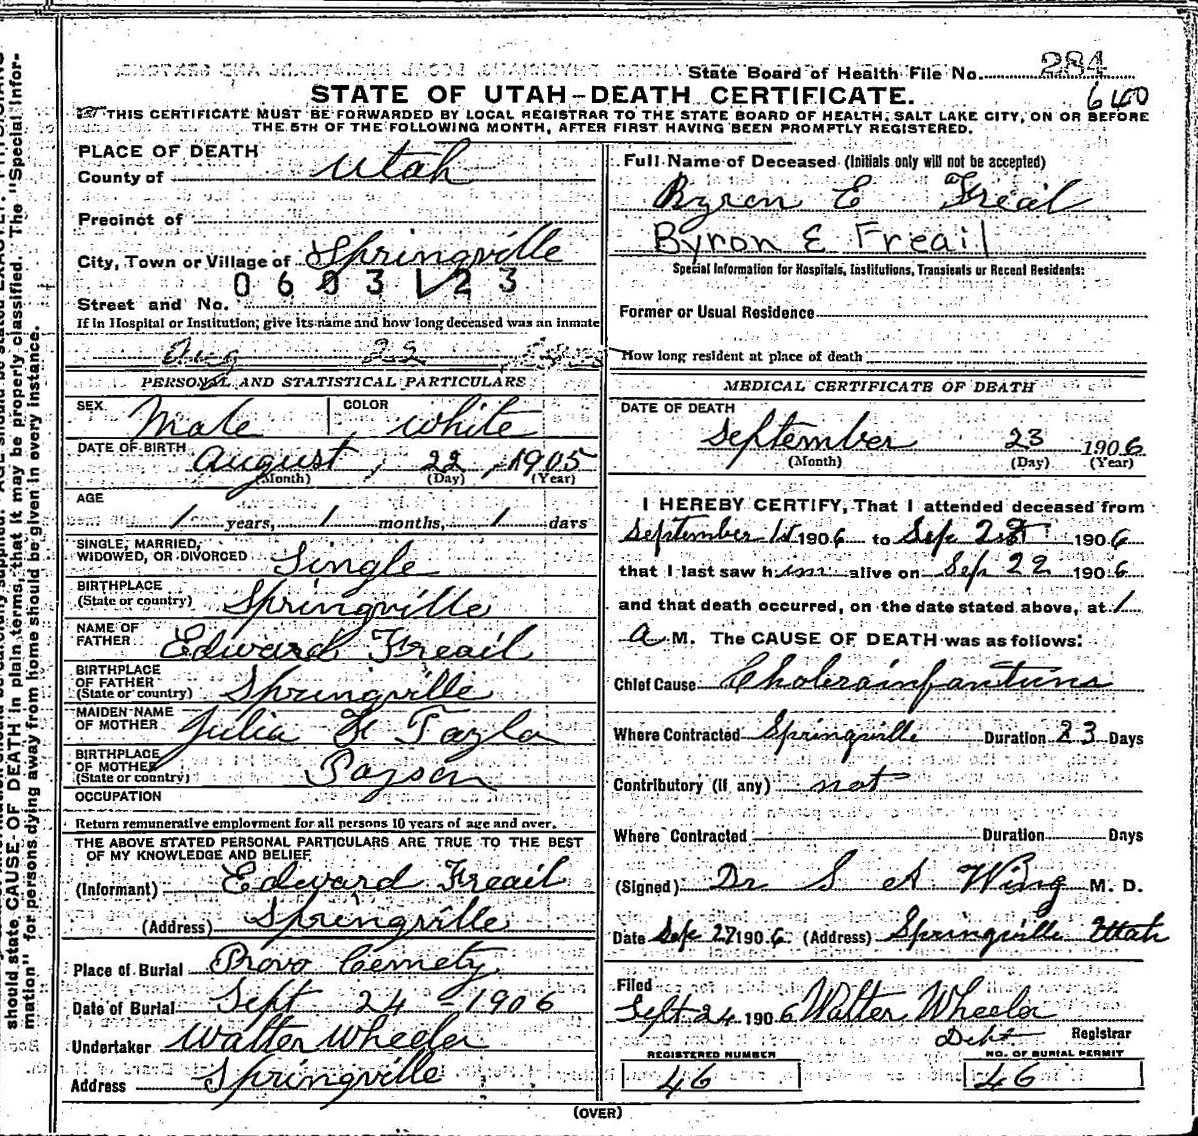 State Board of Health File No. 284
STATE OF UTAH—DEATH CERTIFICATE.
6400
THIS CERTIFICATE MUST BE FORWARDED BY LOCAL REGISTRAR TO THE STATE BOARD OF HEALTH, SALT LAKE CITY, ON OR BEFORE
THE 5TH OF THE FOLLOWING MONTH, AFTER FIRST HAVING BEEN PROMPTLY REGISTERED.
PLACE OF DEATH
County of Utah
Precinct of
City, Town or Village of Springville
0603123
Street and No.
If in Hospital or Institution, give its name and how long deceased was an inmate
Aug 22
PERSONAL AND STATISTICAL PARTICULARS
SEX Male COLOR White
DATE OF BIRTH August, 22, 1905
(Month) (Day) (Year)
AGE
1 years, 1 months, 1 days
SINGLE, MARRIED,
WIDOWED, OR DIVORCED Single
BIRTHPLACE
(State or country) Springville
NAME OF
FATHER Edward Freail
BIRTHPLACE
OF FATHER
(State or country) Springville
MAIDEN NAME
OF MOTHER Julia F Taylo
BIRTHPLACE
OF MOTHER
(State or country) Payson
OCCUPATION
Return remunerative employment for all persons 10 years of age and over.
THE ABOVE STATED PERSONAL PARTICULARS ARE TRUE TO THE BEST
OF MY KNOWLEDGE AND BELIEF
(Informant) Edward Freail
(Address) Springville
Place of Burial Provo Cemety
Date of Burial Sept 24 - 1906
Undertaker Walter Wheeler
Address Springville
Full Name of Deceased (Initials only will not be accepted)
Byron E Freail
Byron E Freail
Special Information for Hospitals, Institutions, Transients or Recent Residents:
Former or Usual Residence
How long resident at place of death
MEDICAL CERTIFICATE OF DEATH
DATE OF DEATH
September 23 1906
(Month) (Day) (Year)
I HEREBY CERTIFY, That I attended deceased from
September 1st 1906 to Sep 1906
that I last saw him alive on Sep 22 1906
and that death occurred, on the date stated above, at 1
a M. The CAUSE OF DEATH was as follows:
Chief Cause Cholerainfantuns
Where Contracted Springville Duration 23 Days
Contributory (if any) not
Where Contracted Duration Days
(Signed) Dr S A Wing M. D.
Date Sep 1906 (Address) Springville Utah
Filed
Sept 24 1906 Walter Wheeler
Debt Registrar
REGISTERED NUMBER
46
NO. OF BURIAL PERMIT
46
(OVER)
should state CAUSE OF DEATH in plain terms, that it may be properly classified. The "Special Infor-
mation" for persons dying away from home should be given in every instance.